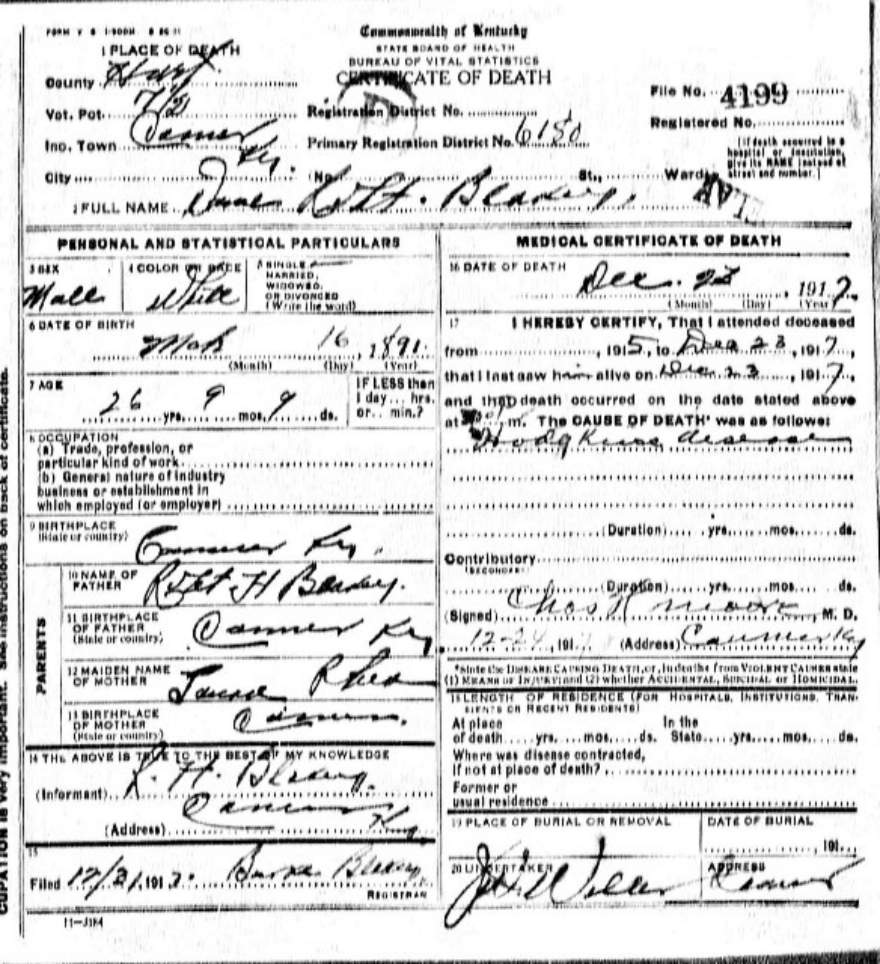 Commonwealth of Kentucky
STATE BOARD OF HEALTH
BUREAU OF VITAL STATISTICS
CERTIFICATE OF DEATH
1 PLACE OF DEATH
County Hart
Vot. Pct.
Inc. Town
Ky.
City
Registration District No.
Primary Registration District No. 6180
File No. 4199
Registered No.
(If death occurred in a
hospital or institution,
give its NAME instead of
street and number.)
No. St., Ward
2 FULL NAME Blakey
PERSONAL AND STATISTICAL PARTICULARS
3 SEX
Male
4 COLOR OR RACE
White
5 SINGLE
MARRIED,
WIDOWED,
OR DIVORCED
(Write the word)
6 DATE OF BIRTH
16, 1891
(Month) (Day) (Year)
7 AGE
26 yrs. 9 mos. 9 ds.
IF LESS than
1 day... hrs.
or... min.?
8 OCCUPATION
(a) Trade, profession, or
particular kind of work
(b) General nature of industry
business or establishment in
which employed (or employer)
9 BIRTHPLACE
(State or country)
Ky.
PARENTS
10 NAME OF
FATHER
H Blakey.
11 BIRTHPLACE
OF FATHER
(State or country)
Ky
12 MAIDEN NAME
OF MOTHER
13 BIRTHPLACE
OF MOTHER
(State or country)
14 THE ABOVE IS TRUE TO THE BEST OF MY KNOWLEDGE
(Informant) R. H. Blakey.
(Address)
15
Filed 12/31, 1917. Blakey
REGISTRAR
11-3184
MEDICAL CERTIFICATE OF DEATH
16 DATE OF DEATH
Dec. 23, 1917.
(Month) (Day) (Year)
17 I HEREBY CERTIFY, That I attended deceased
from , 1915, to Dec 23, 1917,
that I last saw him alive on Dec 23, 1917,
and that death occurred on the date stated above
at m. The CAUSE OF DEATH* was as follows:
Hodgkins desease
(Duration) yrs. mos. ds.
Contributory
(SECONDARY)
(Duration) yrs. mos. ds.
(Signed) Chas R Moore, M. D.
12-24, 1917 (Address) Ky
*State the DISEASE CAUSING DEATH, or, in deaths from VIOLENT CAUSES state
(1) MEANS OF INJURY and (2) whether ACCIDENTAL, SUICIDAL or HOMICIDAL.
18 LENGTH OF RESIDENCE (FOR HOSPITALS, INSTITUTIONS, TRAN-
SIENTS OR RECENT RESIDENTS)
At place In the
of death yrs. mos. ds. State yrs. mos. ds.
Where was disease contracted,
if not at place of death?
Former or
usual residence
19 PLACE OF BURIAL OR REMOVAL
DATE OF BURIAL
, 191
20 UNDERTAKER
ADDRESS
CUPATION is very important. See instructions on back of certificate.